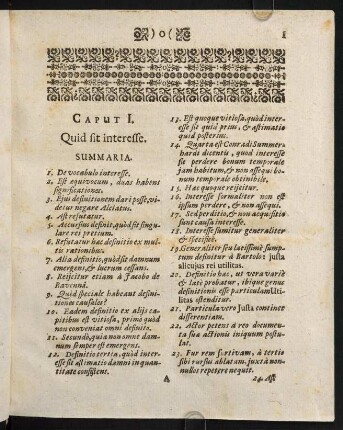 )o(
1
CAPUT I.
Quid sit interesse.
SUMMARIA.
1. De vocabulo interesse.
2. Est equivocum, duas habens
significationes.
3. Ejus definitionem dari posse, vi-
detur negare Alciatus.
4. Ast refutatur.
5. Accursius definit, quòd sit singu-
lare rei pretium.
6. Refutatur hæc definitio ex mul-
tis rationibus.
7. Alia definitio, quòd sit damnum
emergens, & lucrum cessans.
8. Rejicitur etiam à Jacobo de
Ravennâ.
9. Quid speciale habeant defini-
tiones causales?
10. Eadem definitio ex alijs ca-
pitibus est vitiosa, primo quòd
non conveniat omni definito.
11. Secundo, quia non omne dam-
num semper est emergens.
12. Definitio tertia, quòd inter-
esse sit æstimatio damni in quan-
titate consistens.
13. Est quoque vitiosa, quòd inter-
esse sit quid prius, & æstimatio
quid posterius.
14. Quarta est Conradi Summer-
hardi dicentis, quod interesse
sit perdere bonum temporale
jam habitum, & non assequi bo-
num temporale obtinibile.
15. Hæc quoque rejicitur.
16. Interesse formaliter non est
ipsum perdere, & non assequi.
17. Sed perditio, & non acquisitio
sunt causa interesse.
18. Interesse sumitur generaliter
& specificè.
19. Generaliter seu latissimè sum-
ptum definitur à Bartolo: justa
alicujus rei utilitas.
20. Definitio hæc, ut vera variè
& latè probatur, ibique genus
definitionis esse particulam Uti-
litas ostenditur.
21. Particula verò justa continet
differentiam.
22. Actor petens à reo documen-
ta suæ actionis iniquum postu-
lat.
23. Fur rem furtivam, à tertio
sibi rursus ablatam, juxta non-
nullos repetere nequit.
A
24. Ast